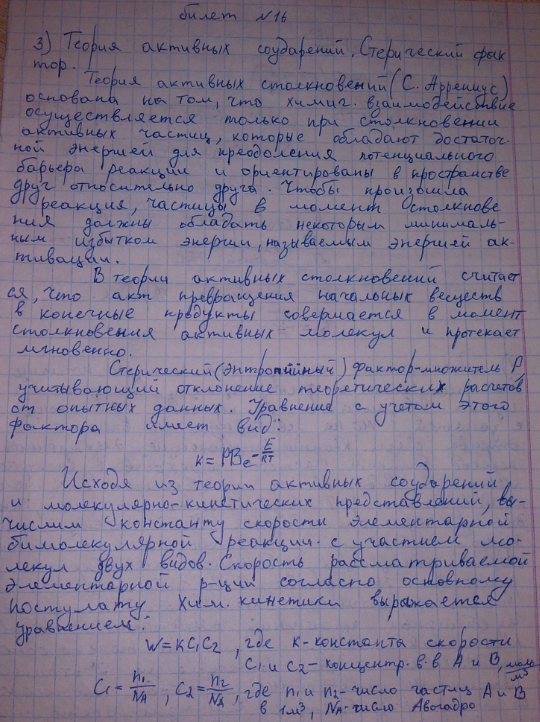 билет №16
3) Теория активных соударений. Стерический фак
тор.
Теория активных столкновений (С. Аррениус)
основана на том, что химич. взаимодействие
осуществляется только при столкновении
активных частиц, которые обладают достаточ-
ной энергией для преодоления потенциального
барьера реакции и ориентированы в пространстве
друг относительно друга. Чтобы произошла
реакция, частицы в момент столкнове
ния должны обладать некоторым минималь-
ным избытком энергии, называемым энергией ак-
тивации.
В теории активных столкновений считает
ся, что акт превращения начальных веществ
в конечные продукты совершается в момент
столкновения активных молекул и протекает
мгновенно.
Стерический (энтропийный) фактор-множитель P,
учитывающий отклонение теоретических расчетов
от опытных данных. Уравнение с учетом этого
фактора имеет вид:
k = PBe^-E/RT
Исходя из теории активных соударений
и молекулярно-кинетических представлений, вы-
числим константу скорости элементарной
бимолекулярной реакции с участием мо-
лекул двух видов. Скорость рассматриваемой
элементарной р-ции согласно основному
постулату хим. кинетики выражается
уравнением:
W = KC1C2, где К-константа скорости
C1 и C2 - концентр. в-в А и В, моль/м³
C1 = n1/NA, C2 = n2/NA, где n1 и n2-число частиц А и В
в 1м³, NA-число Авогадро